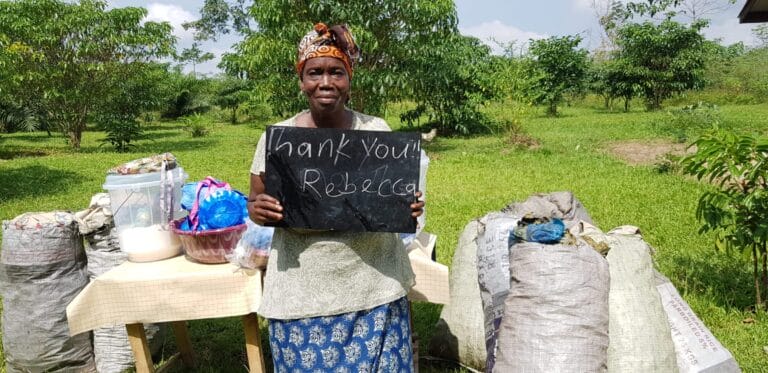 Thank You!!
Rebecca